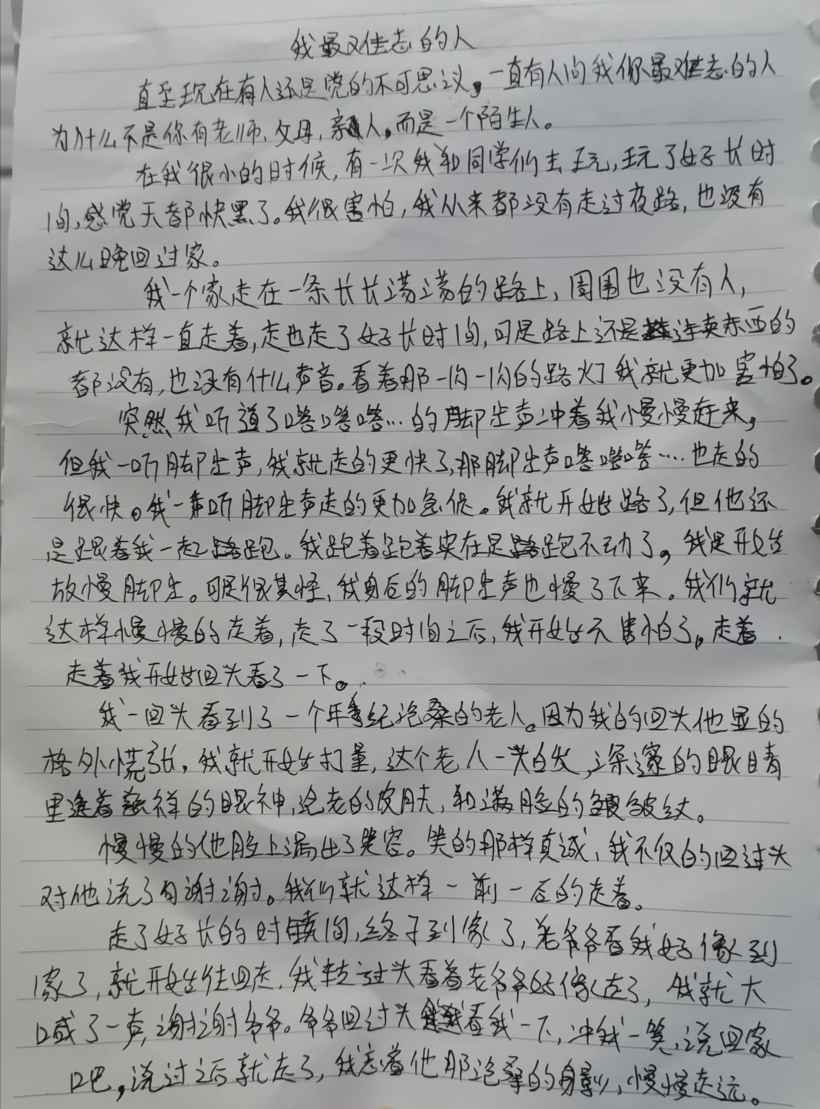 我最难忘的人
直至现在有人还是觉的不可思议，一直有人问我你最难忘的人
为什么不是你有老师、父母，亲人，而是一个陌生人。
在我很小的时候，有一次我和同学们去玩，玩了好长时
间，感觉天都快黑了。我很害怕，我从来都没有走过夜路，也没有
这么晚回过家。
我一个家走在一条长长荡荡的路上，周围也没有人，
就这样一直走着，走也走了好长时间，可是路上还是连卖东西的
都没有，也没有什么声音。看着那一闪一闪的路灯我就更加害怕了。
突然我听道了嗒嗒嗒…的脚步声冲着我慢慢赶来，
但我一听脚步声，我就走的更快了，那脚步声嗒嗒嗒…也走的
很快。我一听脚步声走的更加急促。我就开始跑了，但他还
是跟着我一起跑。我跑着跑着实在是跑不动了，我是开始
放慢脚步。可是很其怪，我身后的脚步声也慢了下来。我们就
这样慢慢的走着，走了一段时间之后，我开始不害怕了。走着
走着我开始回头看了一下。
我一回头看到了一个年纪沧桑的老人。因为我的回头他显的
格外慌张，我就开始打量，这个老人一头白发，深邃的眼睛
里透着慈祥的眼神，沧老的皮肤，和满脸的皱纹。
慢慢的他脸上漏出了笑容。笑的那样真诚，我不仅的回过头
对他说了句谢谢。我们就这样一前一后的走着。
走了好长的时间，终于到家了，老爷爷看我好像到
家了，就开始往回走，我转过头看着老爷爷好像走了，我就大
喊了一声，谢谢爷爷。爷爷回过头看我一下，冲我一笑，说回家
吧，说过之后就走了，我忘着他那沧桑的身影，慢慢走远。